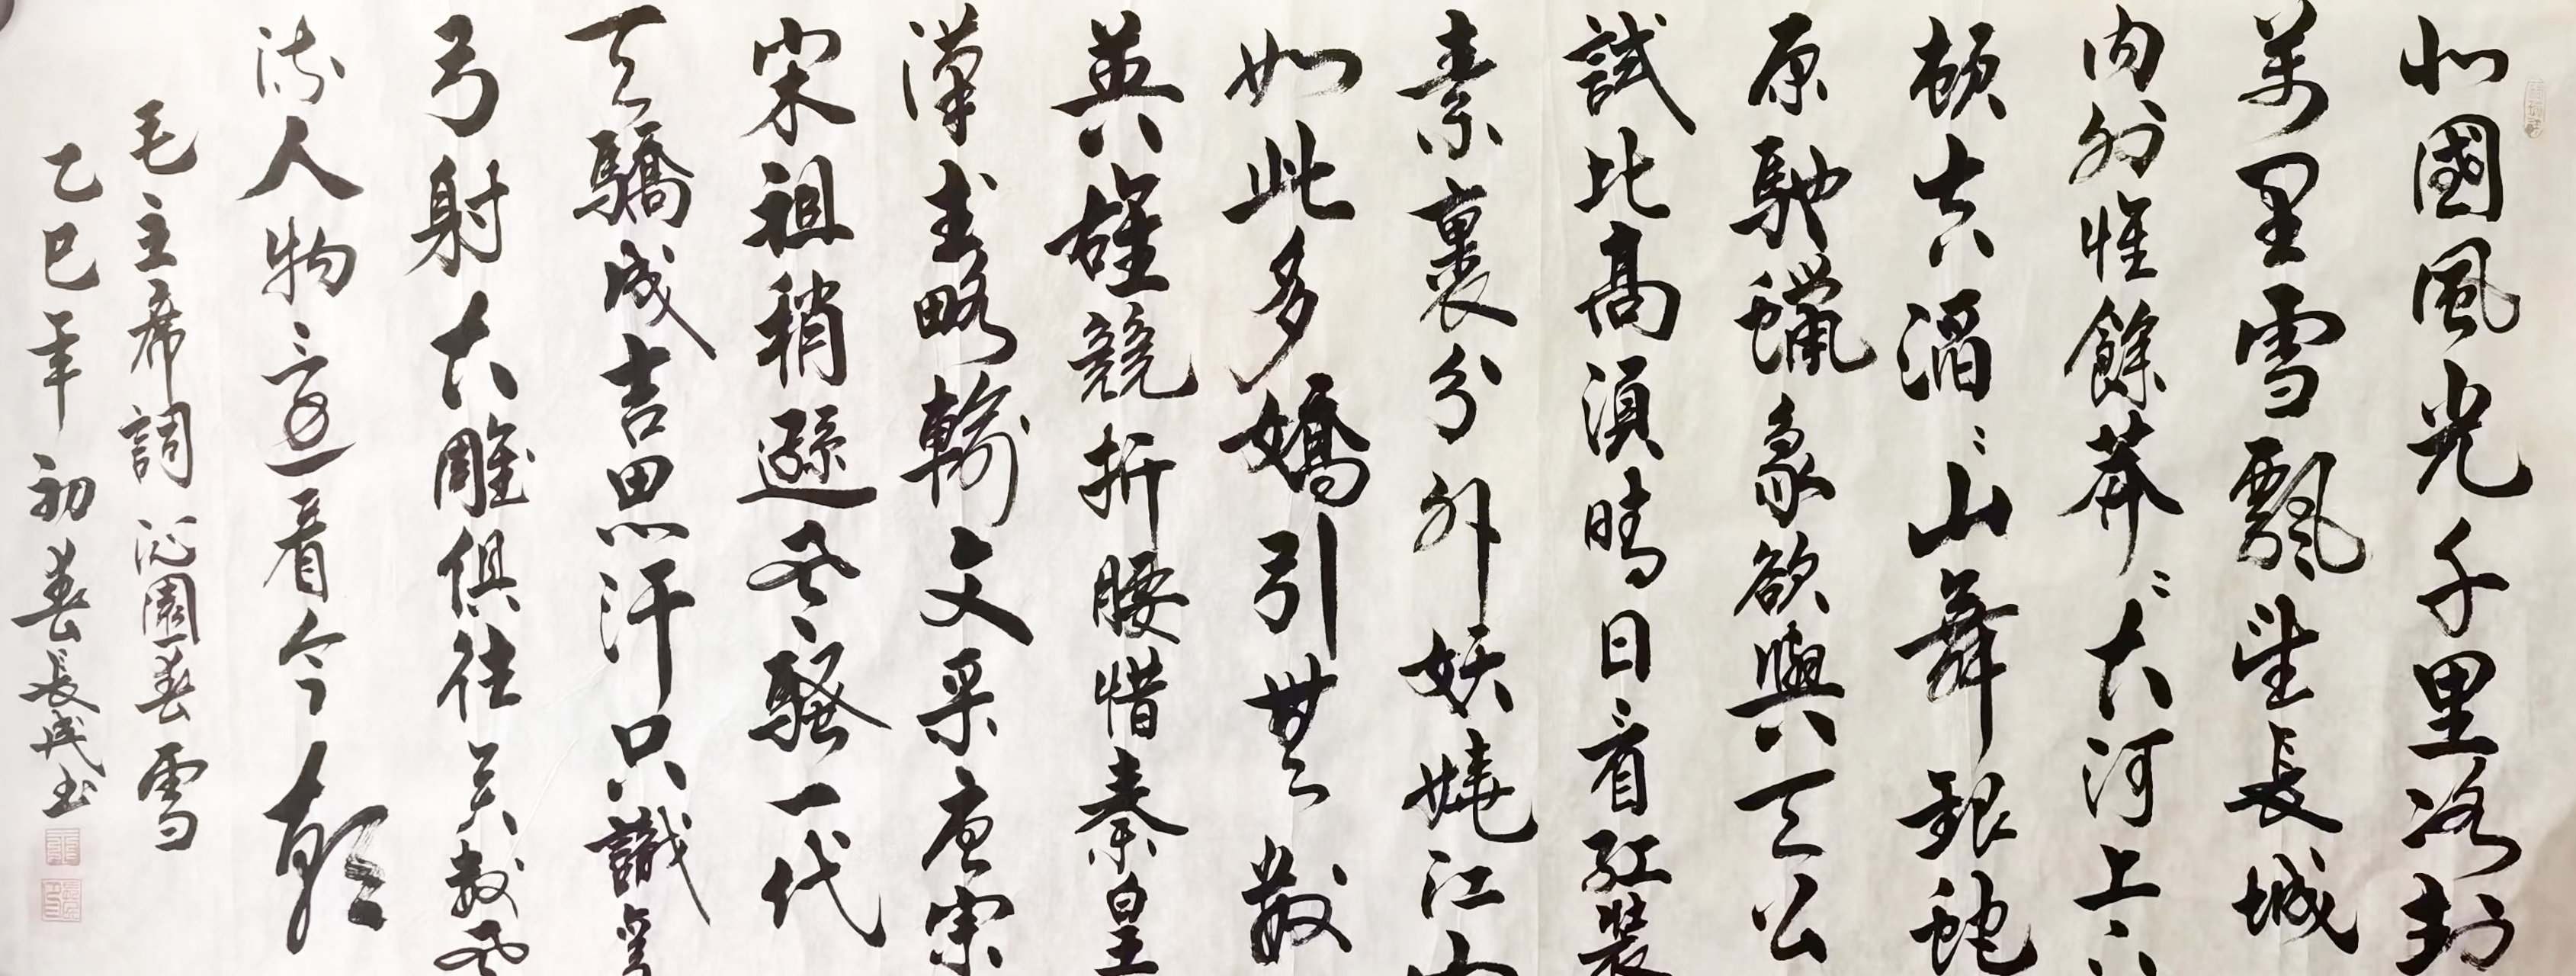 北國風光千里冰封
萬里雪飄望長城
内外惟餘莽〻大河上下
頓失滔〻山舞銀蛇
原馳蠟象欲與天公
試比高須晴日看紅裝
素裹分外妖嬈江山
如此多嬌引無數
英雄競折腰惜秦皇
漢武略輸文采唐宗
宋祖稍遜風騷一代
天驕成吉思汗只識彎
弓射大雕俱往矣數風
流人物還看今朝
毛主席詞沁園春雪
乙巳年初春長成书